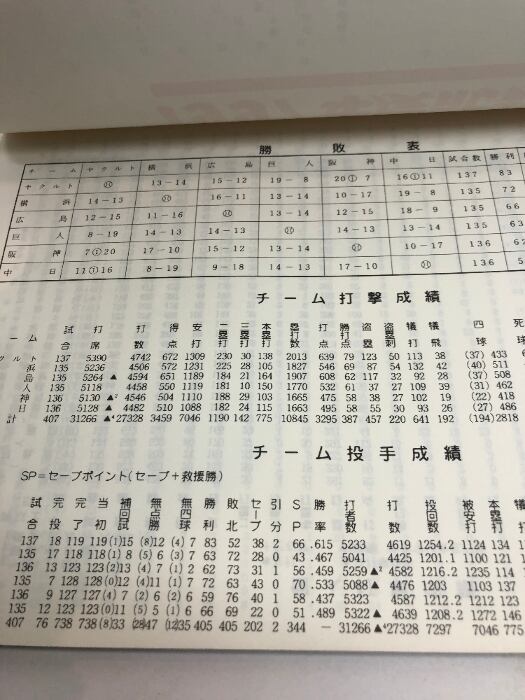 勝敗表
チーム ヤクルト 横浜 広島 巨人 阪神 中日 試合数 勝利
ヤクルト 13－14 15－12 19－8 20①7 16①11 137 83
横浜 14－13 16－11 13－14 10－17 19－8 135 72
広島 12－15 11－16 13－14 12－15 18－9 135 66
巨人 8－19 14－13 14－13 14－13 13－14 135 63
阪神 7①20 17－10 15－12 13－14 10－17 136 62
中日 11①16 8－19 9－18 14－13 17－10 136 5
チーム打撃成績
ーム 試合 打席 打数 得点 安打 二塁打 三塁打 本塁打 塁打数 打点 勝利打点 盗塁 盗塁刺 犠打 犠飛 四球 死球
クルト 137 5390 4742 672 1309 230 30 138 2013 639 79 123 50 113 38 (37) 433
浜 135 5236 4506 572 1231 225 28 105 1827 546 69 87 54 132 42 (40) 511
島 135 5264 ▲ 4594 651 1189 184 21 164 1907 608 62 117 32 92 28 (37) 508
人 135 5118 4458 550 1119 181 10 150 1770 532 61 37 27 109 39 (31) 462
神 136 5130 ▲² 4546 504 1110 188 29 103 1665 475 58 38 27 102 19 (22) 418
日 136 5128 ▲ 4482 510 1088 182 24 115 1663 495 58 55 30 93 26 (27) 486
計 407 31266 ▲⁴27328 3459 7046 1190 142 775 10845 3295 387 457 220 641 192 (194)2818
チーム投手成績
SP＝セーブポイント(セーブ＋救援勝)
試合 完投 完了 当初 補回試 無点勝 無四球 勝利 敗北 セーブ 引分 SP 勝率 打者数 打数 投回数 被安打 本塁打 犠打
137 18 119 119 (1)15 (8)12 (4)7 83 52 38 2 66 .615 5233 4619 1254.2 1124 134
135 17 118 118 (1)8 (5)6 (3)7 63 72 28 0 43 .467 5041 4425 1201.1 1100 121
136 13 123 123 (2)13 (4)7 (1)2 62 73 31 1 56 .459 5259 ▲² 4582 1216.2 1235 114
135 7 128 128 (0)12 (4)11 (1)7 72 63 43 0 70 .533 5088 ▲ 4476 1203 1103 137
136 9 127 127 (4)7 (2)6 (2)6 59 76 40 1 58 .437 5323 4587 1212.2 1212 123
135 12 123 123 (0)11 (5)5 (1)6 66 69 22 0 51 .489 5322 ▲ 4639 1208.2 1272 146
407 76 738 738 (8)33 (28)47 (12)35 405 405 202 2 344 － 31266 ▲⁴27328 7297 7046 775